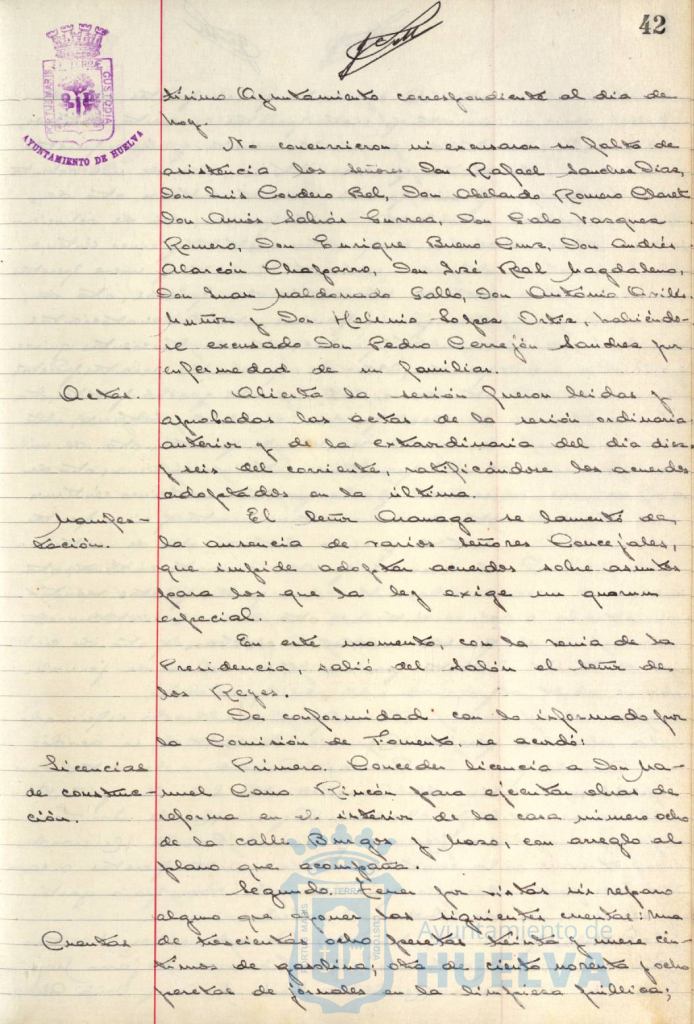 42
PORTUS MARIS ET TERRAE CUSTODIA
AYUNTAMIENTO DE HUELVA
tísimo Ayuntamiento correspondiente al dia de
hoy.
No concurrieron ni excusaron su falta de
asistencia los señores Don Rafael Sanchez Diaz,
Don Luis Cordero Bel, Don Abelardo Romero Claret
Don Amós Sabrás Gurrea, Don Galo Vazquez
Romero, Don Enrique Bueno Cruz, Don Andrés
Alarcón Chaparro, Don José Real Magdaleno,
Don Juan Maldonado Gallo, Don António
Muñoz y Don Helenio Lopez Ortiz, habiéndo-
se excusado Don Pedro Cerrejón Sanchez por
enfermedad de un familiar.
Actas.
Abierta la sesión fueron leidas y
aprobadas las actas de la sesión ordinaria
anterior y de la extraordinaria del dia diez
y seis del corriente, ratificándose los acuerdos
adoptados en la última.
Manifes-
tación.
El Señor Aramaga se lamentó de
la ausencia de varios Señores Concejales,
que impide adoptar acuerdos sobre asuntos
para los que la ley exige un quorum
especial.
En este momento, con la venia de la
Presidencia, salió del Salón el Señor de
los Reyes.
De conformidad con lo informado por
la Comisión de Fomento, se acordó:
Licencias
de construc-
ción.
Primero. Conceder licencia a Don Ma-
nuel Cano Rincón para ejecutar obras de
reforma en el interior de la casa número ocho
de la calle Burgos y Mazo, con arreglo al
plano que acompaña.
Segundo. Tener por vistas sin reparo
alguno que oponer las siguientes cuentas: una
Cuentas
de trescientas ocho pesetas treinta y nueve cén-
timos de gasolina; otra de ciento noventa y ocho
pesetas de jornales en la limpieza pública;
Ayuntamiento de
HUELVA